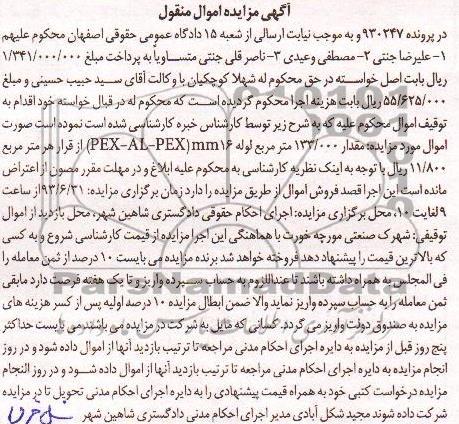 آگهی مزایده اموال منقول
در پرونده ۹۳۰۲۴۷ و به موجب نیابت ارسالی از شعبه ۱۵ دادگاه عمومی حقوقی اصفهان محکوم علیهم
۱-علیرضا جنتی ۲-مصطفی وعیدی ۳-ناصر قلی جنتی متساویا به پرداخت مبلغ ۱/۳۴۱/۰۰۰/۰۰۰
ریال بابت اصل خواسته در حق محکوم له شهلا کوچکیان با وکالت آقای سید حبیب حسینی و مبلغ
۵۵/۶۲۵/۰۰۰ ریال بابت هزینه اجرا محکوم گردیده است که محکوم له در قبال خواسته خود اقدام به
توقیف اموال محکوم علیه که به شرح زیر توسط کارشناس خبره کارشناسی شده است نموده است صورت
اموال مورد مزایده: مقدار ۱۳۳/۰۰۰ متر مربع لوله ۱۶mm(PEX-AL-PEX) از قرار هر متر مربع
۱۱/۸۰۰ ریال با توجه به اینک نظریه کارشناسی به محکوم علیه ابلاغ و در مهلت مقرر مصون از اعتراض
مانده است این اجرا قصد فروش اموال از طریق مزایده را دارد زمان برگزاری مزایده: ۹۳/۶/۳۱از ساعت
۹ لغایت ۱۰، محل برگزاری مزایده: اجرای احکام حقوقی دادگستری شاهین شهر، محل بازدید از اموال
توقیفی: شهرک صنعتی مورچه خورت با هماهنگی این اجرا مزایده از قیمت کارشناسی شروع و به کسی
که بالاترین قیمت را پیشنهاد دهد فروخته خواهد شد برنده مزایده می بایست ۱۰ درصد از ثمن معامله را
فی المجلس به همراه داشته باشند تا عنداللزوم به حساب سپرده واریز و تا یک هفته فرصت دارد مابقی
ثمن معامله را به حساب سپرده واریز نماید والا ضمن ابطال مزایده ۱۰ درصد اولیه پس از کسر هزینه های
مزایده به صندوق دولت واریز می گردد. کسانی که مایل به شرکت در مزایده می باشند می بایست حداکثر
پنج روز قبل از مزایده به دایره اجرای احکام مدنی مراجعه تا ترتیب بازدید آنها از اموال داده شود و در روز
انجام مزایده به دایره اجرای احکام مدنی مراجعه تا ترتیب بازدید آنها از اموال داده شود و در روز النجام
مزایده درخواست کتبی خود به همراه قیمت پیشنهادی را به دایره اجرای احکام مدنی تحویل تا در مزایده
شرکت داده شوند مجید شکل آبادی مدیر اجرای احکام مدنی دادگستری شاهین شهر